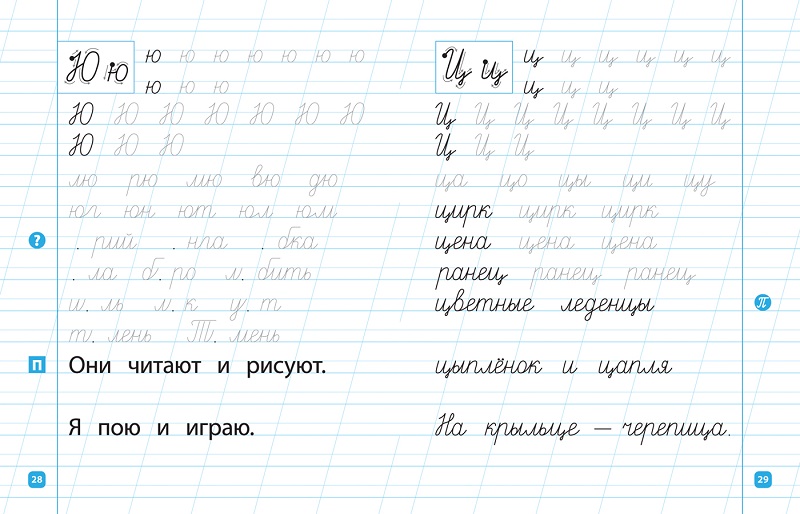 Ю ю ю ю ю ю ю ю ю
ю ю ю
Ю Ю Ю Ю Ю Ю Ю
Ю Ю Ю
лю рю мю вю дю
юг юн ют юл юм
? . рий . нла . бка
. ла б. ро л. бить
ш. ль л. к у. т
т. лень Т. мень
П Они читают и рисуют.
Я пою и играю.
28
Ц ц ц ц ц ц ц ц
ц ц ц
Ц Ц Ц Ц Ц Ц Ц Ц
Ц Ц Ц
ца цо цы ци цу
цирк цирк цирк
цена цена цена
ранец ранец ранец
цветные леденцы П
цыплёнок и цапля
На крыльце — черепица.
29